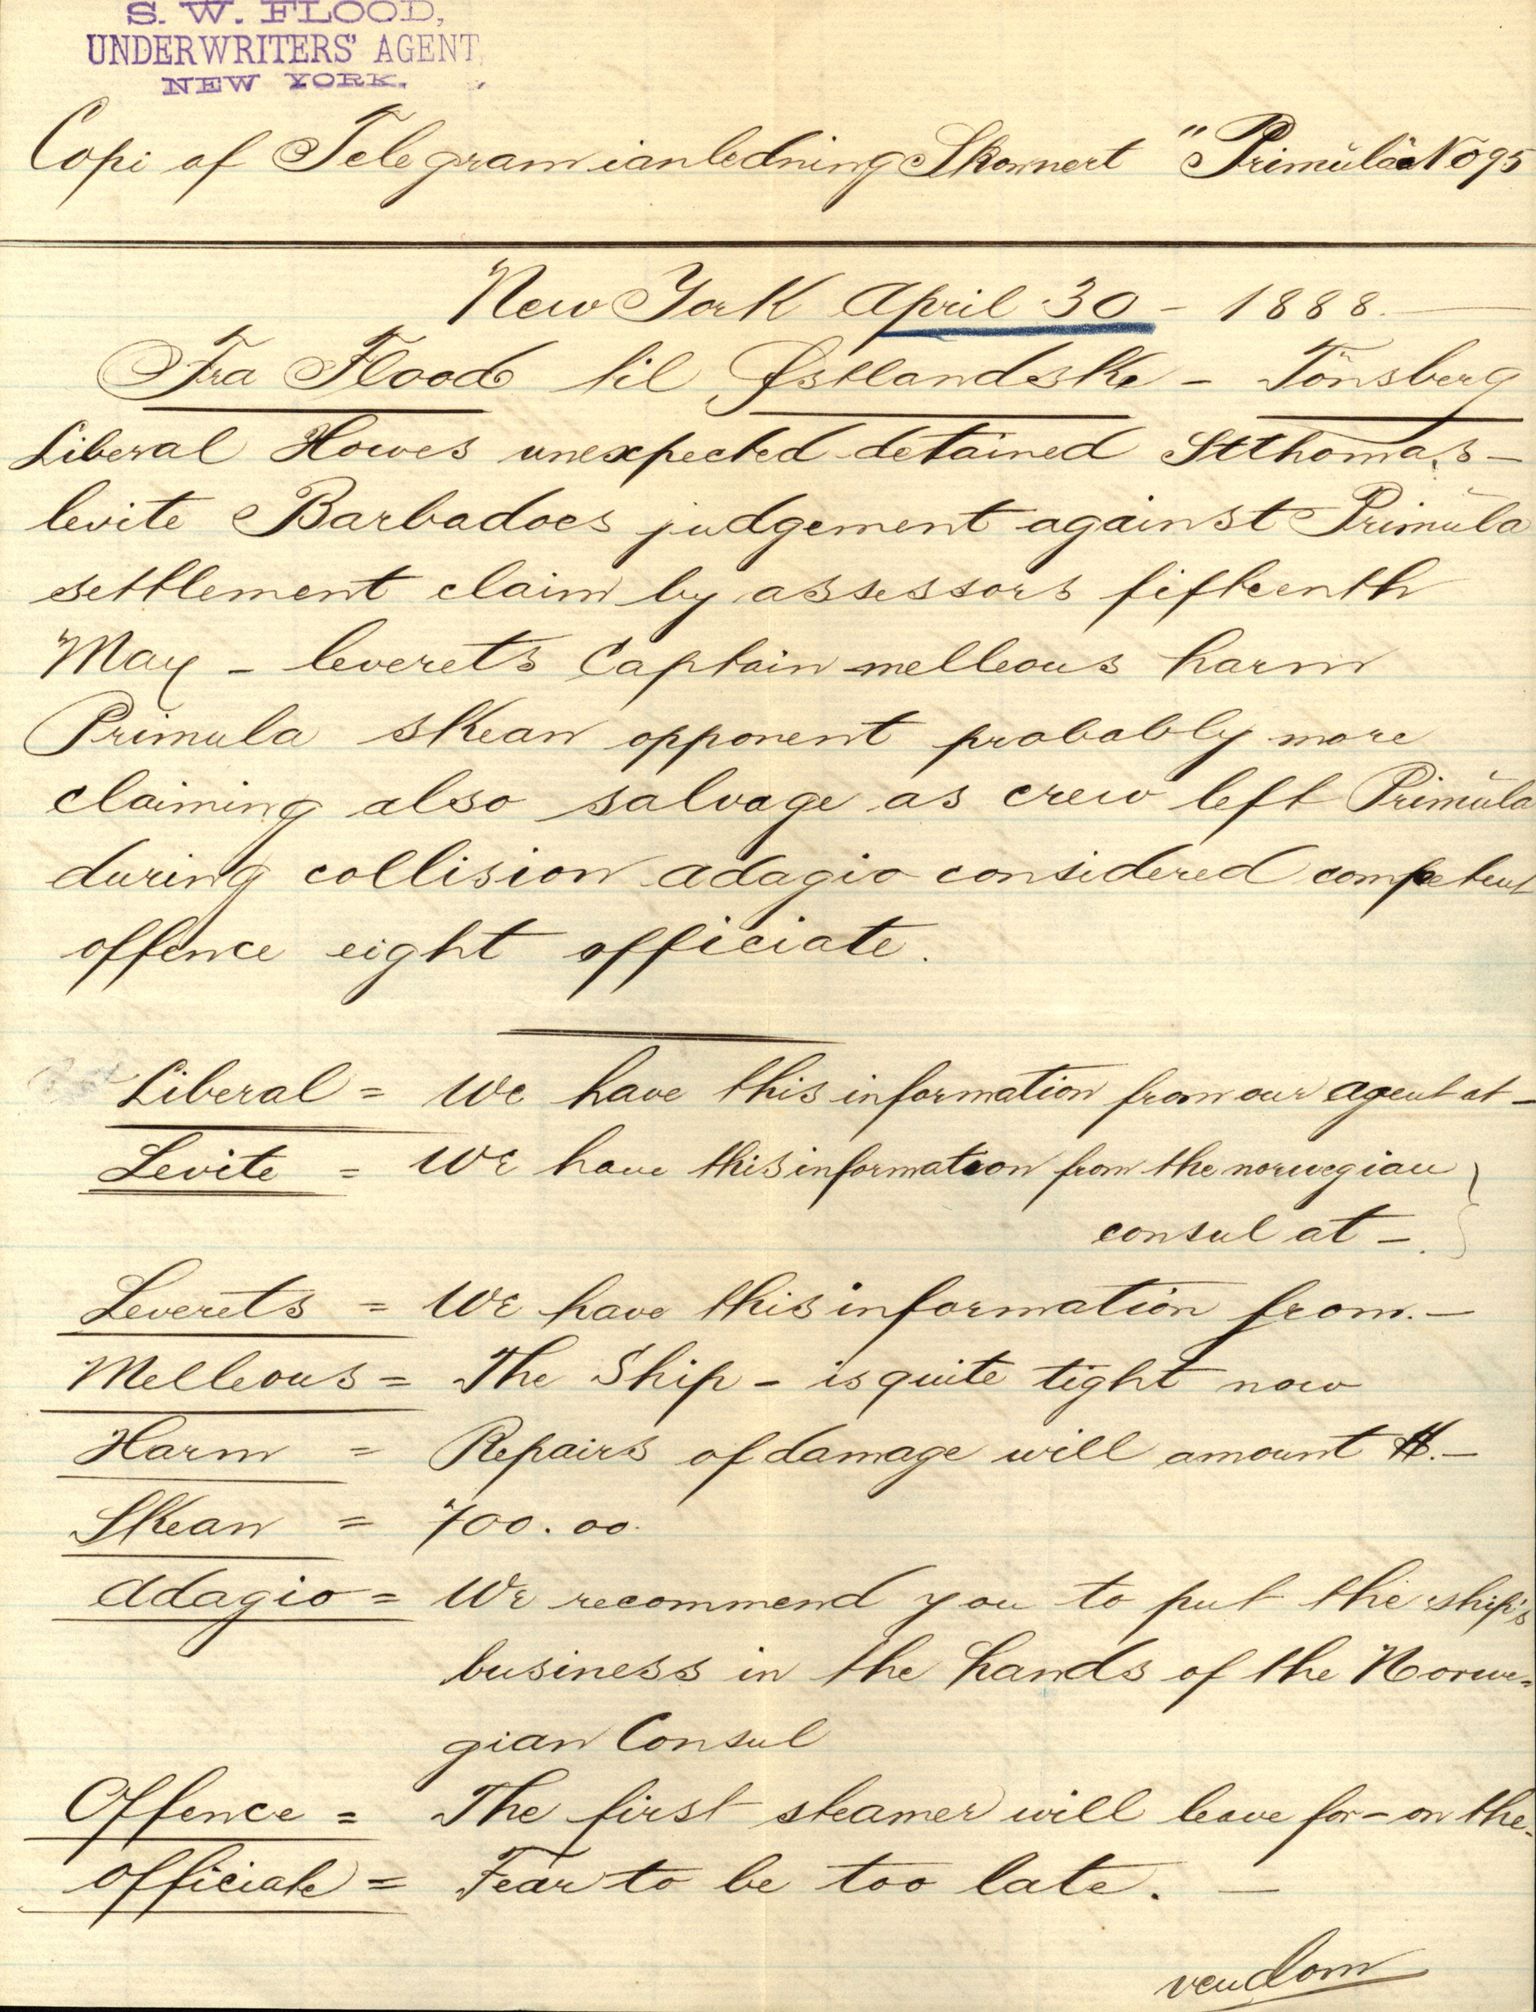 S. W. FLOOD,
UNDERWRITERS' AGENT,
NEW YORK.
Copi of Telegram ianledning Skonnert "Primúla" No 95
New York April 30 - 1888.
Fra Flood til Østlandske - Tönsberg
Liberal Howes unexpected detained Stthomas -
levite Barbadoes judgement against Primúla
settlement claim by assessors fifteenth
May - leverets Captain melleous harm
Primula skean opponent probably more
claiming also salvage as crew left Primúla
during collision adagio considered competent
offence eight officiate.
Liberal = We have this information from our agent at -
Levite = We have this information from the norwegian
consul at -
Leverets = We have this information from. -
Melleous = The Ship - is quite tight now
Harm = Repairs of damage will amount $. -
Skean = 700.00.
Adagio = We recommend you to put the ship's
business in the hands of the Norwe=
gian Consul
Offence = The first steamer will leave for - on the -
officiate = Fear to be too late. -
vendom